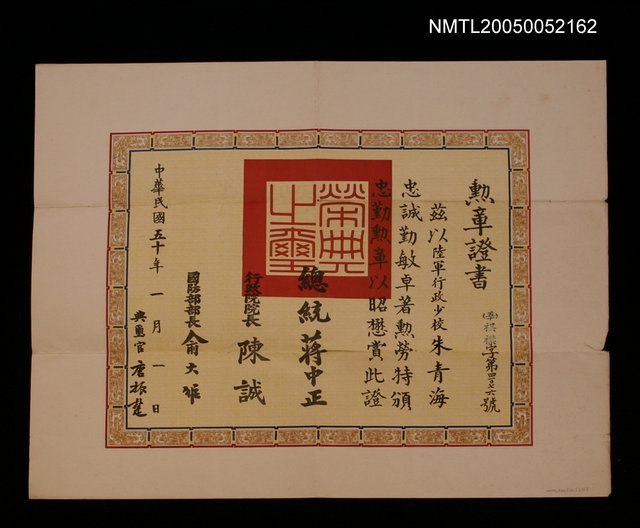 NMTL20050052162
勲章證書
棋懋字第四七六號
茲以陸軍行政少校朱青海
忠誠勤敏卓著勲勞特頒
忠勤勲章以昭懋賞此證
榮典之璽
總統蔣中正
行政院院長陳誠
國防部部長俞大維
典璽官唐振楚
中華民國五十年一月一日